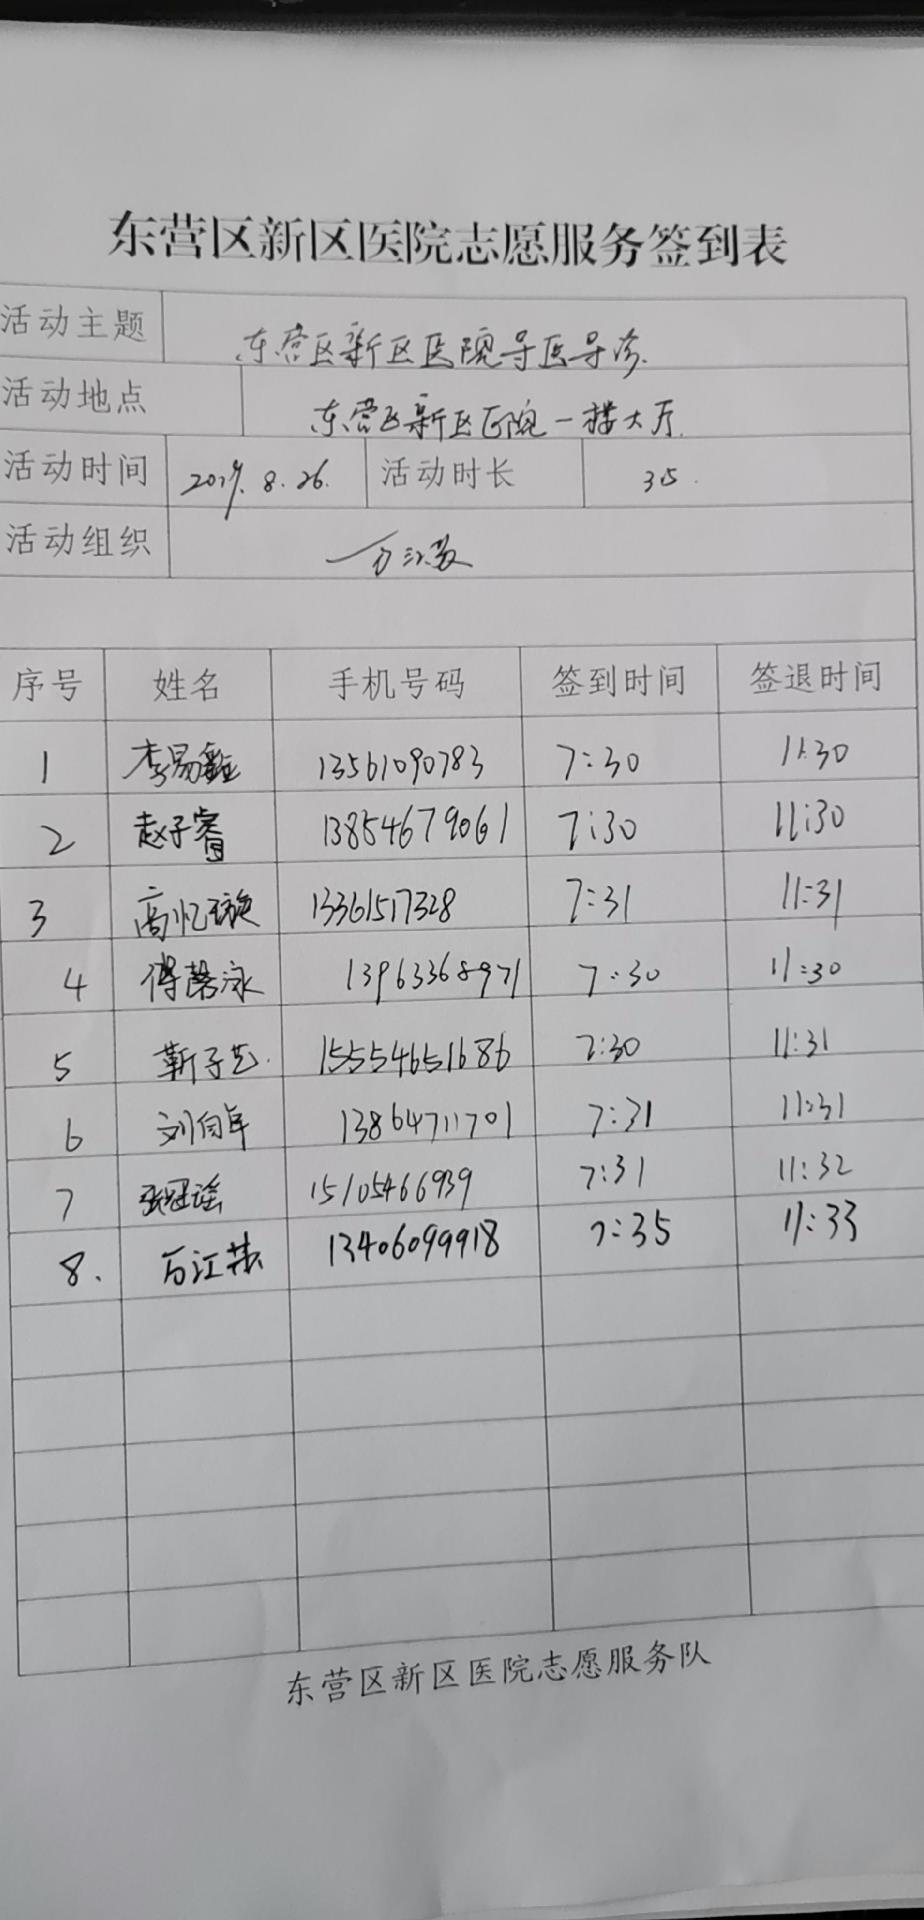 东营区新区医院志愿服务签到表
活动主题 东营区新区医院导医导诊.
活动地点 东营区新区医院一楼大厅.
活动时间 8.26. 活动时长
活动组织
序号 姓名 手机号码 签到时间 签退时间
1 李易 13561090783 7:30 11:30
2 赵子睿 13854679061 7:30 11:30
3 高忆璇 13361517328 7:31 11:31
4 傅馨泳 13963368971 7:30 11:30
5 靳子艺. 15554651686 7:30 11:31
6 刘 13864711701 7:31 11:31
7 张冠瑶 15105466939 7:31 11:32
8. 万江 13406099918 7:35 11:33
东营区新区医院志愿服务队